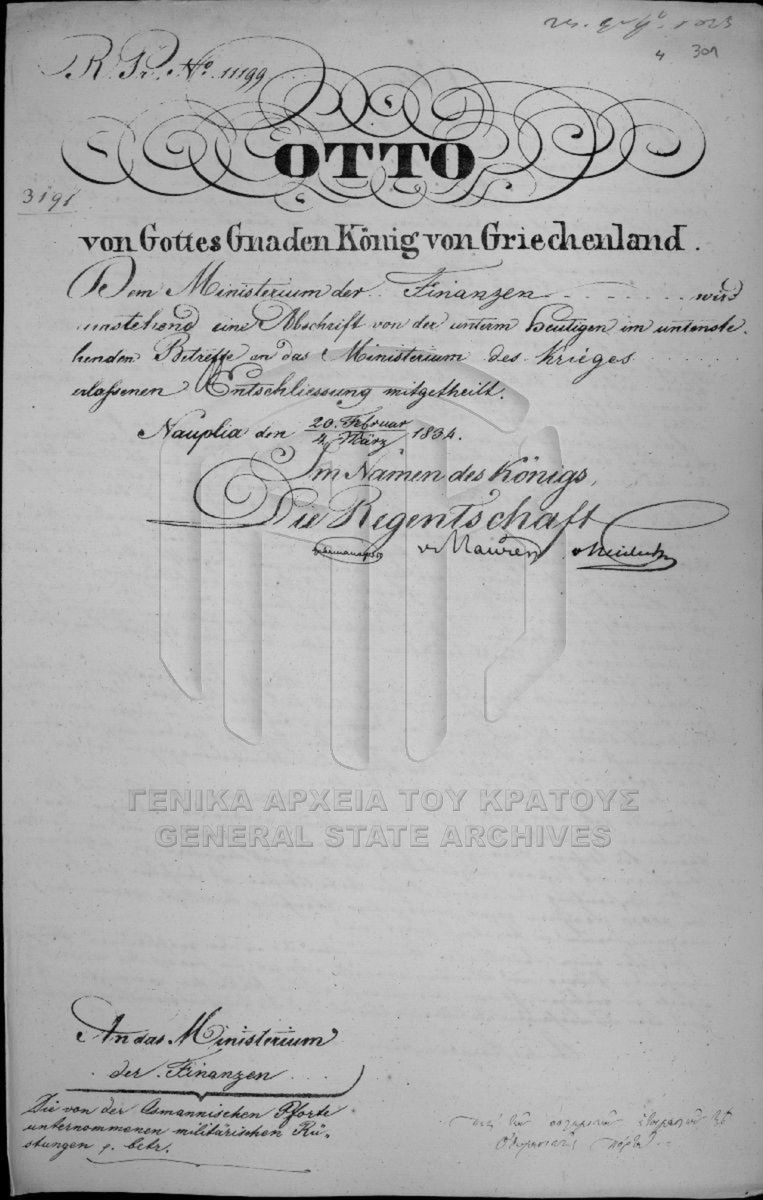 R. Pr. No. 11199
301
3191
OTTO
von Gottes Gnaden König von Griechenland.
Dem Ministerium der Finanzen wird
umstehend eine Abschrift von der unterm heutigen im untenste-
henden Betreffe an das Ministerium des Krieges
erlassenen Entschliessung mitgetheilt.
Nauplia den 20. Februar
4. März 1834.
Im Namen des Königs,
Die Regentschaft
v. Maurer
ΓΕΝΙΚΑ ΑΡΧΕΙΑ ΤΟΥ ΚΡΑΤΟΥΣ
GENERAL STATE ARCHIVES
An das Ministerium
der Finanzen
Die von der Osmannischen Pforte
unternommenen militärischen Rü-
stungen betr.